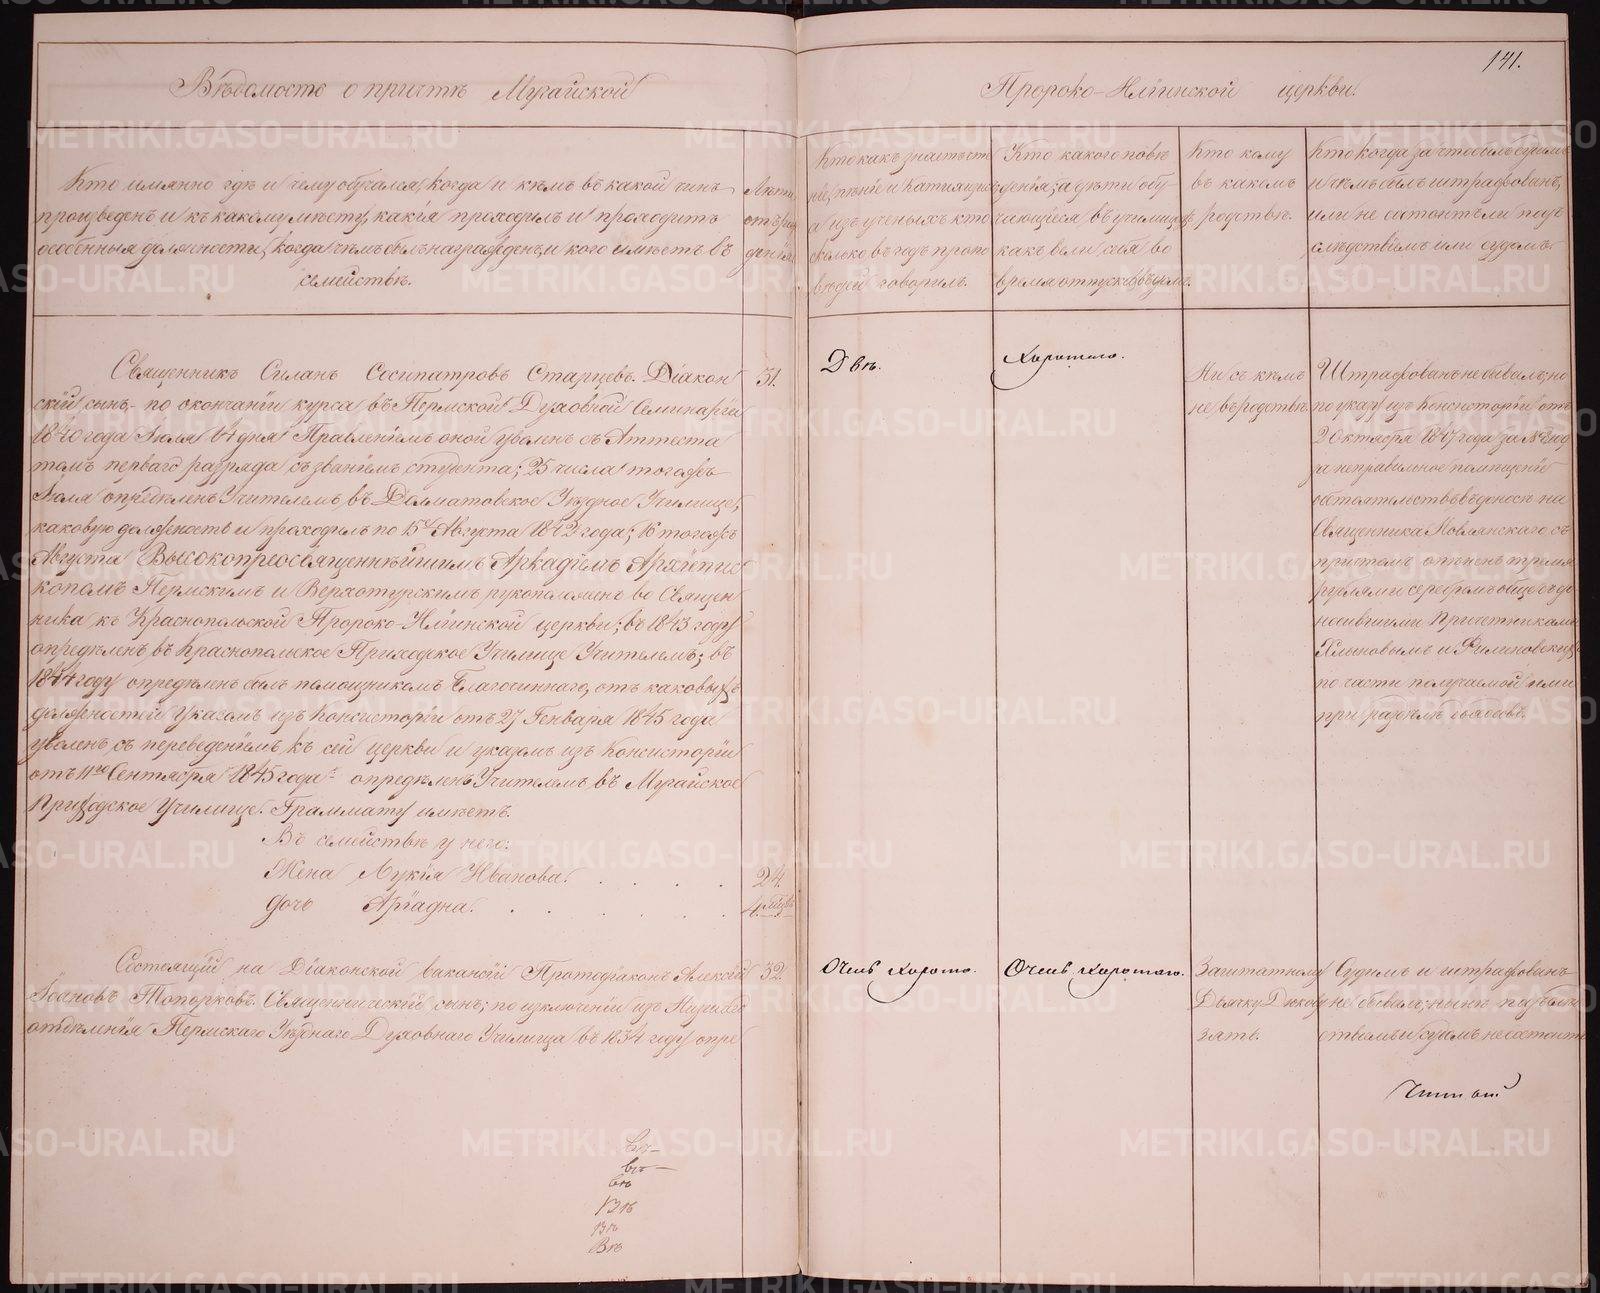 141.
Вѣдомость о причтѣ Мугайской
Пророко-Ильинской церкви.
Кто имянно гдѣ и чему обучался, когда и кѣмъ въ какой чинъ
произведенъ и къ какому мѣсту, какія проходилъ и проходитъ
особенныя должности, когда чѣмъ былъ награжденъ, и кого имѣетъ въ
семействѣ.
Лѣта
отъ рож
денія
Кто какъ знаетъ чте
ніе, пѣніе и катихизисъ
а изъ ученыхъ кто
сколько въ годъ пропо
вѣдей говорилъ.
Кто какого пове
денія, а дѣти обу
чающіеся въ училищахъ
какъ вели себя во
время отпуска въ домъ.
Кто кому
въ какомъ
родствѣ.
Кто когда за что былъ судимъ
и чѣмъ былъ штрафованъ,
или не состоитъ ли подъ
слѣдствіемъ или судомъ
Священникъ Силанъ Сосипатровъ Старцевъ. Діакон
скій сынъ, по окончаніи курса въ Пермской Духовной Семинаріи
1840 года Іюля 14 дня Правленіемъ оной уволенъ съ Аттеста
томъ перваго разряда съ званіемъ студента; 25 числа тогожъ
Іюля опредѣленъ Учителемъ въ Долматовское Уѣздное Училище,
каковую должность и проходилъ по 15е Августа 1842 года; 16 тогожъ
Августа Высокопреосвященнѣйшимъ Аркадіемъ Архіепис
копомъ Пермскимъ и Верхотурскимъ рукоположенъ во Священ
ника къ Краснопольской Пророко-Ильинской церкви; въ 1843 году
опредѣленъ въ Краснопольское Приходское Училище Учителемъ; въ
1844 году опредѣленъ былъ помощникомъ Благочиннаго, отъ каковыхъ
должностей Указомъ изъ Консисторіи отъ 27 Генваря 1845 года
уволенъ съ переведеніемъ къ сей церкви и указомъ изъ Консисторіи
отъ 11го Сентября 1845 года опредѣленъ Учителемъ въ Мугайское
Приходское Училище. Граммату имѣетъ.
31.
Двѣ.
Хорошаго.
Ни съ кѣмъ
не въ родствѣ
Штрафованъ не бывалъ; но
по указу изъ Консисторіи отъ
2 Октября 1847 года за №
за неправильное помѣщеніе
обстоятельствъ въ доносъ на
Священника Поблянскаго съ
причтомъ оштрафленъ тремя
рублями серебромъ обще съ до
носившими Причетниками
и Филиновскимъ
по части получаемой ими
при раздѣлѣ доходовъ.
Въ семействѣ у него:
Жена Лукія Иванова. 24.
Дочь Аріадна. 4.
Состоящій на Діаконской вакансіи Протодіаконъ Алексій
Іоановъ Топорковъ. Священническій сынъ; по изключеніи изъ Низшаго
отдѣленія Пермскаго Уѣзднаго Духовнаго Училища въ 1834 году опре
32.
Очень хорошо.
Очень хорошаго.
Заштатному
Дьячку Дюкову
зять.
Судимъ и штрафованъ
не бывалъ; нынѣ подъ слѣд
ствіемъ и судомъ не состоитъ
Читалъ
Въ
въ
въ
Въ
Въ
Въ